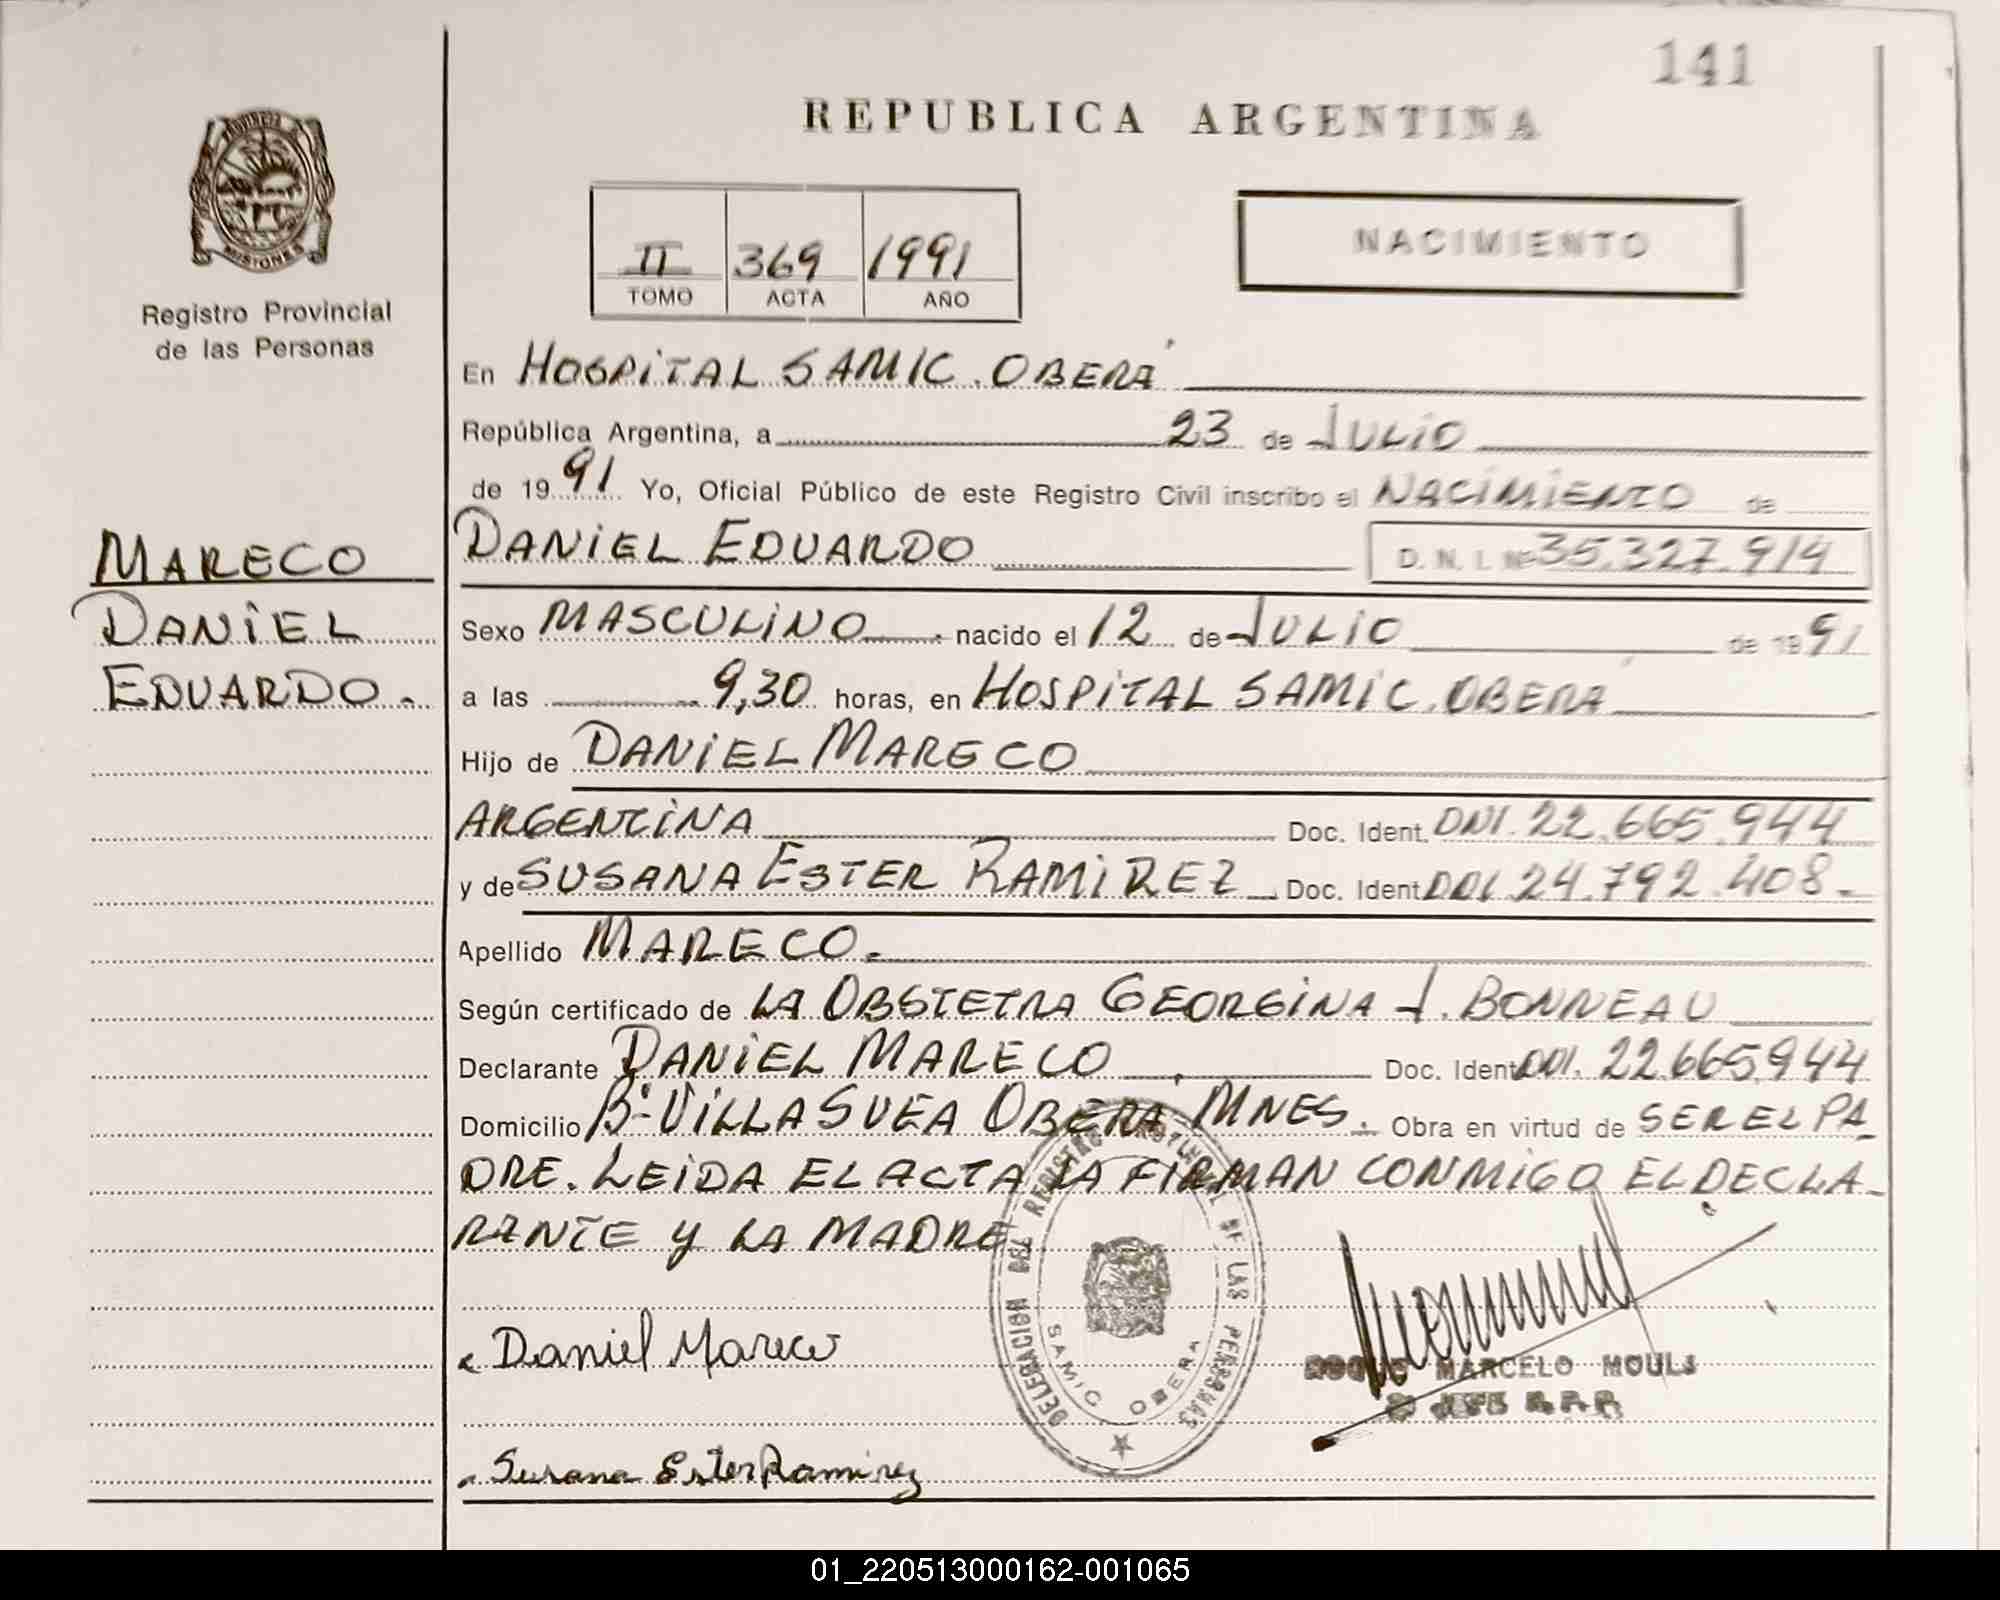 141
REPUBLICA ARGENTINA
PROVINCIA
MISIONES
Registro Provincial
de las Personas
II 369 1991
TOMO ACTA AÑO
NACIMIENTO
En HOSPITAL SAMIC. OBERÁ
República Argentina, a 23 de JULIO
de 1991 Yo, Oficial Público de este Registro Civil inscribo el NACIMIENTO de
MARECO
DANIEL
EDUARDO.
DANIEL EDUARDO D. N. I. Nº 35.327.914
Sexo MASCULINO nacido el 12 de JULIO de 1991
a las 9,30 horas, en HOSPITAL SAMIC. OBERÁ
Hijo de DANIEL MARECO
ARGENTINA Doc. Ident. DNI. 22.665.944
y de SUSANA ESTER RAMIREZ Doc. Ident DNI 24.792.408.-
Apellido MARECO.
Según certificado de LA OBSTETRA GEORGINA J. BONNEAU
Declarante DANIEL MARECO Doc. Ident DNI. 22.665944
Domicilio Bº VILLA SVEA OBERA MNES. Obra en virtud de SER EL PA
DRE. LEIDA EL ACTA LA FIRMAN CONMIGO EL DECLA-
RANTE Y LA MADRE
Daniel Mareco
Susana Ester Ramirez
DELEGACION DEL REGISTRO PROVINCIAL DE LAS PERSONAS
SAMIC OBERA
ROQUE MARCELO MOULS
JEFE R.P.P.
01_220513000162-001065